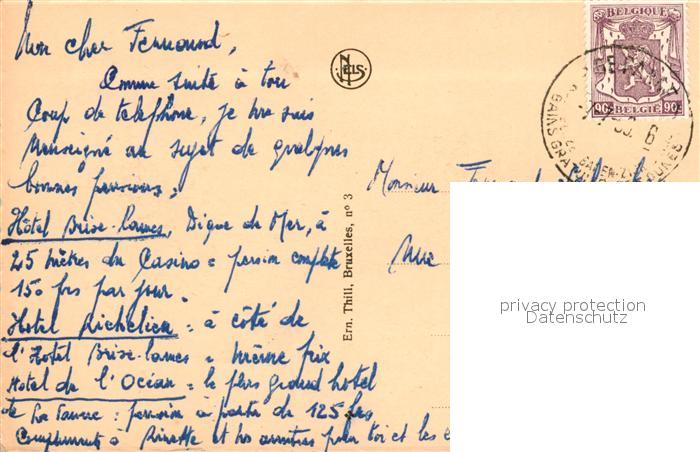 Mon cher Fernand,
Comme suite à ton
coup de telephone, je me suis
renseigné au sujet de quelques
bonnes pensions.
Hôtel Brise-lames, Digue de Mer, à
25 mètres du Casino = pension complete
150 frs par jour.
Hotel Richelieu = à côté de
l'Hotel Brise-lames = même prix
Hotel de l'Océan = le plus grand hotel
de La Panne : pension à partir de 125 frs
Compliments à Ninette et nos amitiés pour toi et les
NELS
Ern. Thill, Bruxelles, n° 3
BELGIQUE
90c BELGIË 90c
Monsieur
Rue
privacy protection
Datenschutz